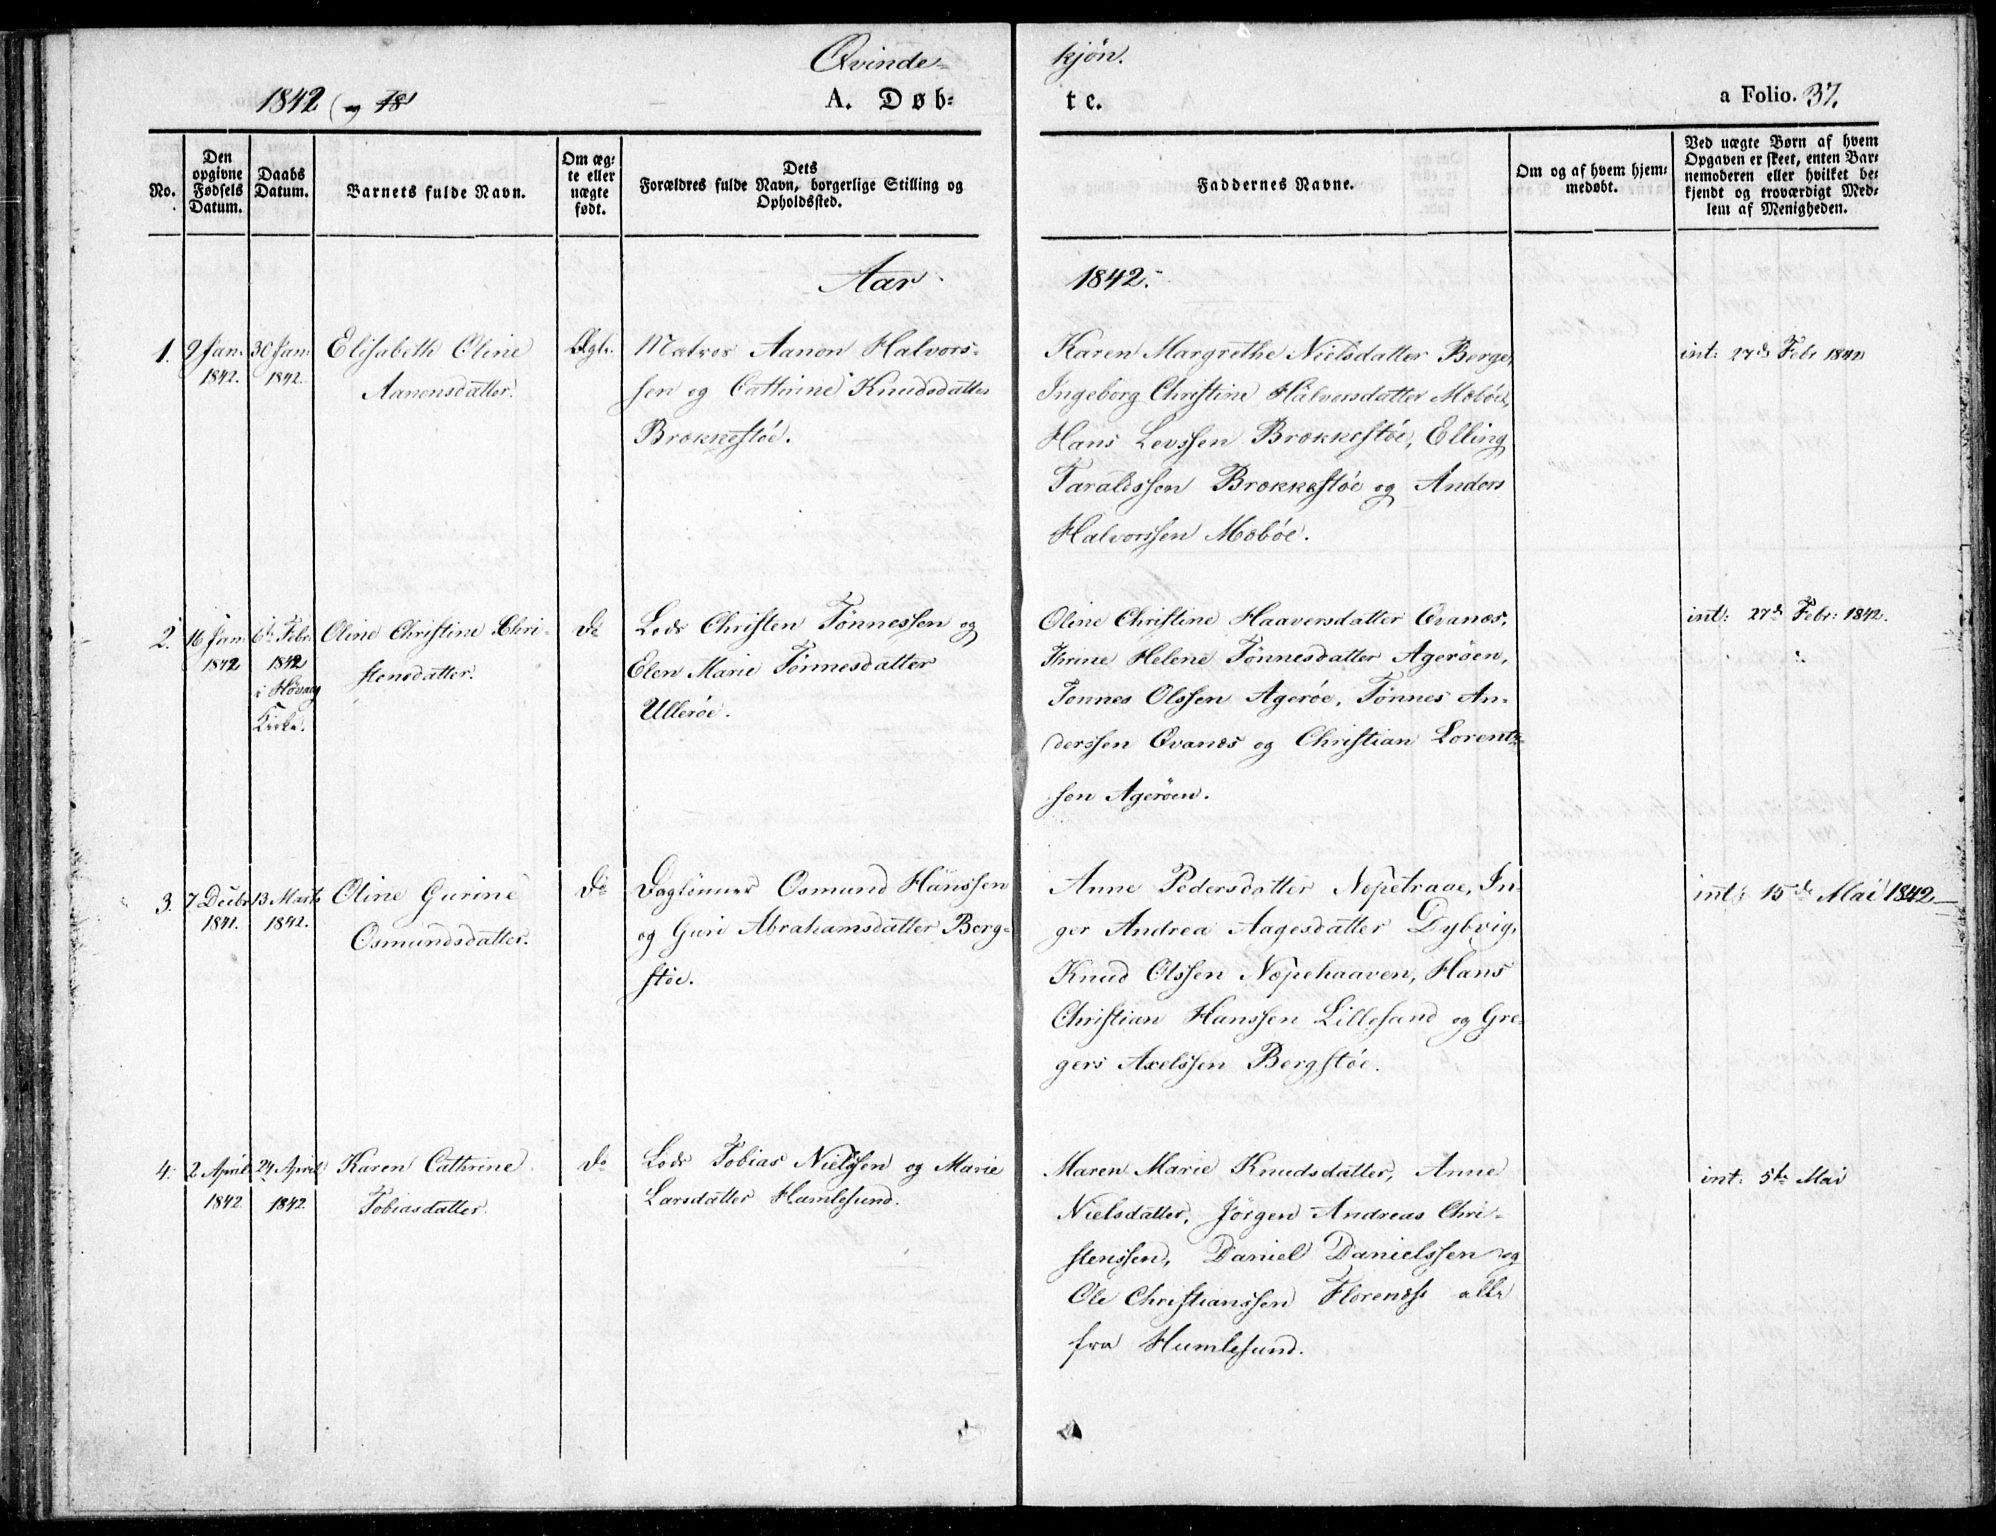 Qvinde- kjön.
1842 (og 18 A. Døb- te. a Folio. 37.
No.
Den opgivne Fødsels Datum.
Daabs Datum.
Barnets fulde Navn.
Om ægte eller uægte født.
Dets Forældres fulde Navn, borgerlige Stilling og Opholdssted.
Faddernes Navne.
Om og af hvem hjemmedøbt.
Ved uægte Børn af hvem Opgaven er skeet, enten Barnemoderen eller hvilket bekjendt og troværdigt Medlem af Menigheden.
Aar 1842.
1.
9 Jan:
1842.
30 Jan:
1842.
Elisabeth Oline
Aanonsdatter.
Ægte.
Matros Aanon Halvors-
sen og Cathrine Knudsdatter
Brækkestöe.
Karen Margrethe Nielsdatter Berge,
Ingeborg Christine Halvorsdatter Mæböe,
Hans Levssen Brækkestöe, Elling
Taraldssen Brækkestöe og Anders
Halvorssen Mæböe.
int: 27de Febr 1842
2.
16 Jan:
1842
6te Febr
1842
i Høvaag
Kirke.
Oline Christine Chri-
stensdatter.
Do
Lods Christen Tönnessen og
Elen Marie Tönnesdatter
Ulleröe.
Oline Christine Haaversdatter Qvanæs,
Thrine Helene Tönnesdatter Ageröen,
Tönnes Olssen Ageröe, Tönnes An-
derssen Qvanæs og Christian Lorent-
sen Ageröen.
int: 27de Febr: 1842.
3.
7 Decbr
1841.
13 Marts
1842.
Oline Gurine
Osmundsdatter.
Do
Daglönner Osmund Hanssen
og Guri Abrahamsdatter Berg-
stöe.
Anne Pedersdatter Næpetraae, In-
ger Andrea Aagesdatter Dybvig,
Knud Olssen Næpehaaven, Hans
Christian Hanssen Lillesand og Gre-
gers Axelssen Bergstöe.
int: 15de Mai 1842
4.
2 April
1842
24 April
1842
Karen Cathrine
Tobiasdatter.
Do
Lods Tobias Nielssen og Marie
Larsdatter Humlesund.
Maren Marie Knudsdatter, Anne
Nielsdatter, Jörgen Andreas Chri-
stenssen, Daniel Danielssen og
Ole Christianssen Florenæs alle
fra Humlesund.
int: 5te Mai